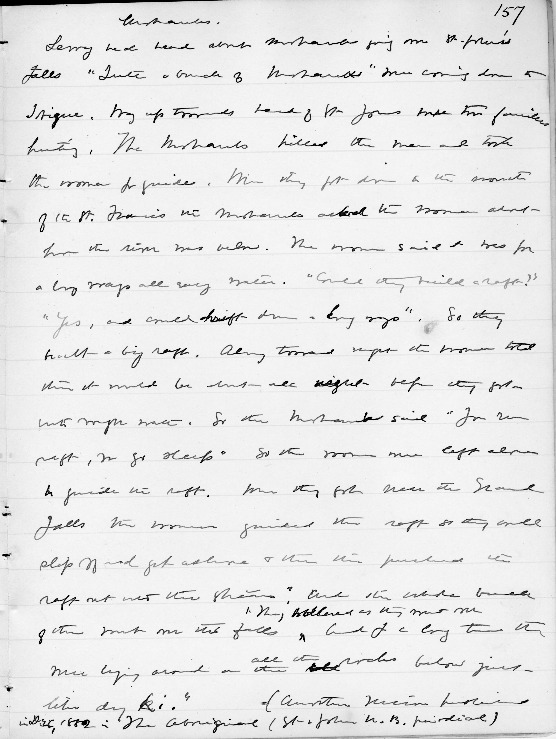 157
Mohawks.
had heard about Mohawks going over St. John's
falls "Quite a bunch of Mohawks" were coming down to
. Way up towards head of St. Johns were two families
hunting. The Mohawks killed the men and took
the women for guides. When they got down to the mouth
of the St. Francis the Mohawks asked the women about
how the river was below. The women said it was for
a long ways all easy water. "Could they build a raft?"
"Yes, and could drift down a long ways". So they
built a big raft. Along toward night the women told
them it would be all night before they got
into rough water. So the Mohawks said "You run
raft, we go sleep" So the women were left alone
to guide the raft. When they got near the Grand
Falls the women guided the raft so they could
slip off and get ashore & then they pushed the
raft out into the stream. And the whole bunch
"They hollered as they went over
of them went over the falls and for a long time they
were lying around on all the rocks below just
like dry ki."
(Another version
in , 18 in The Aboriginal (St. John N.B. )